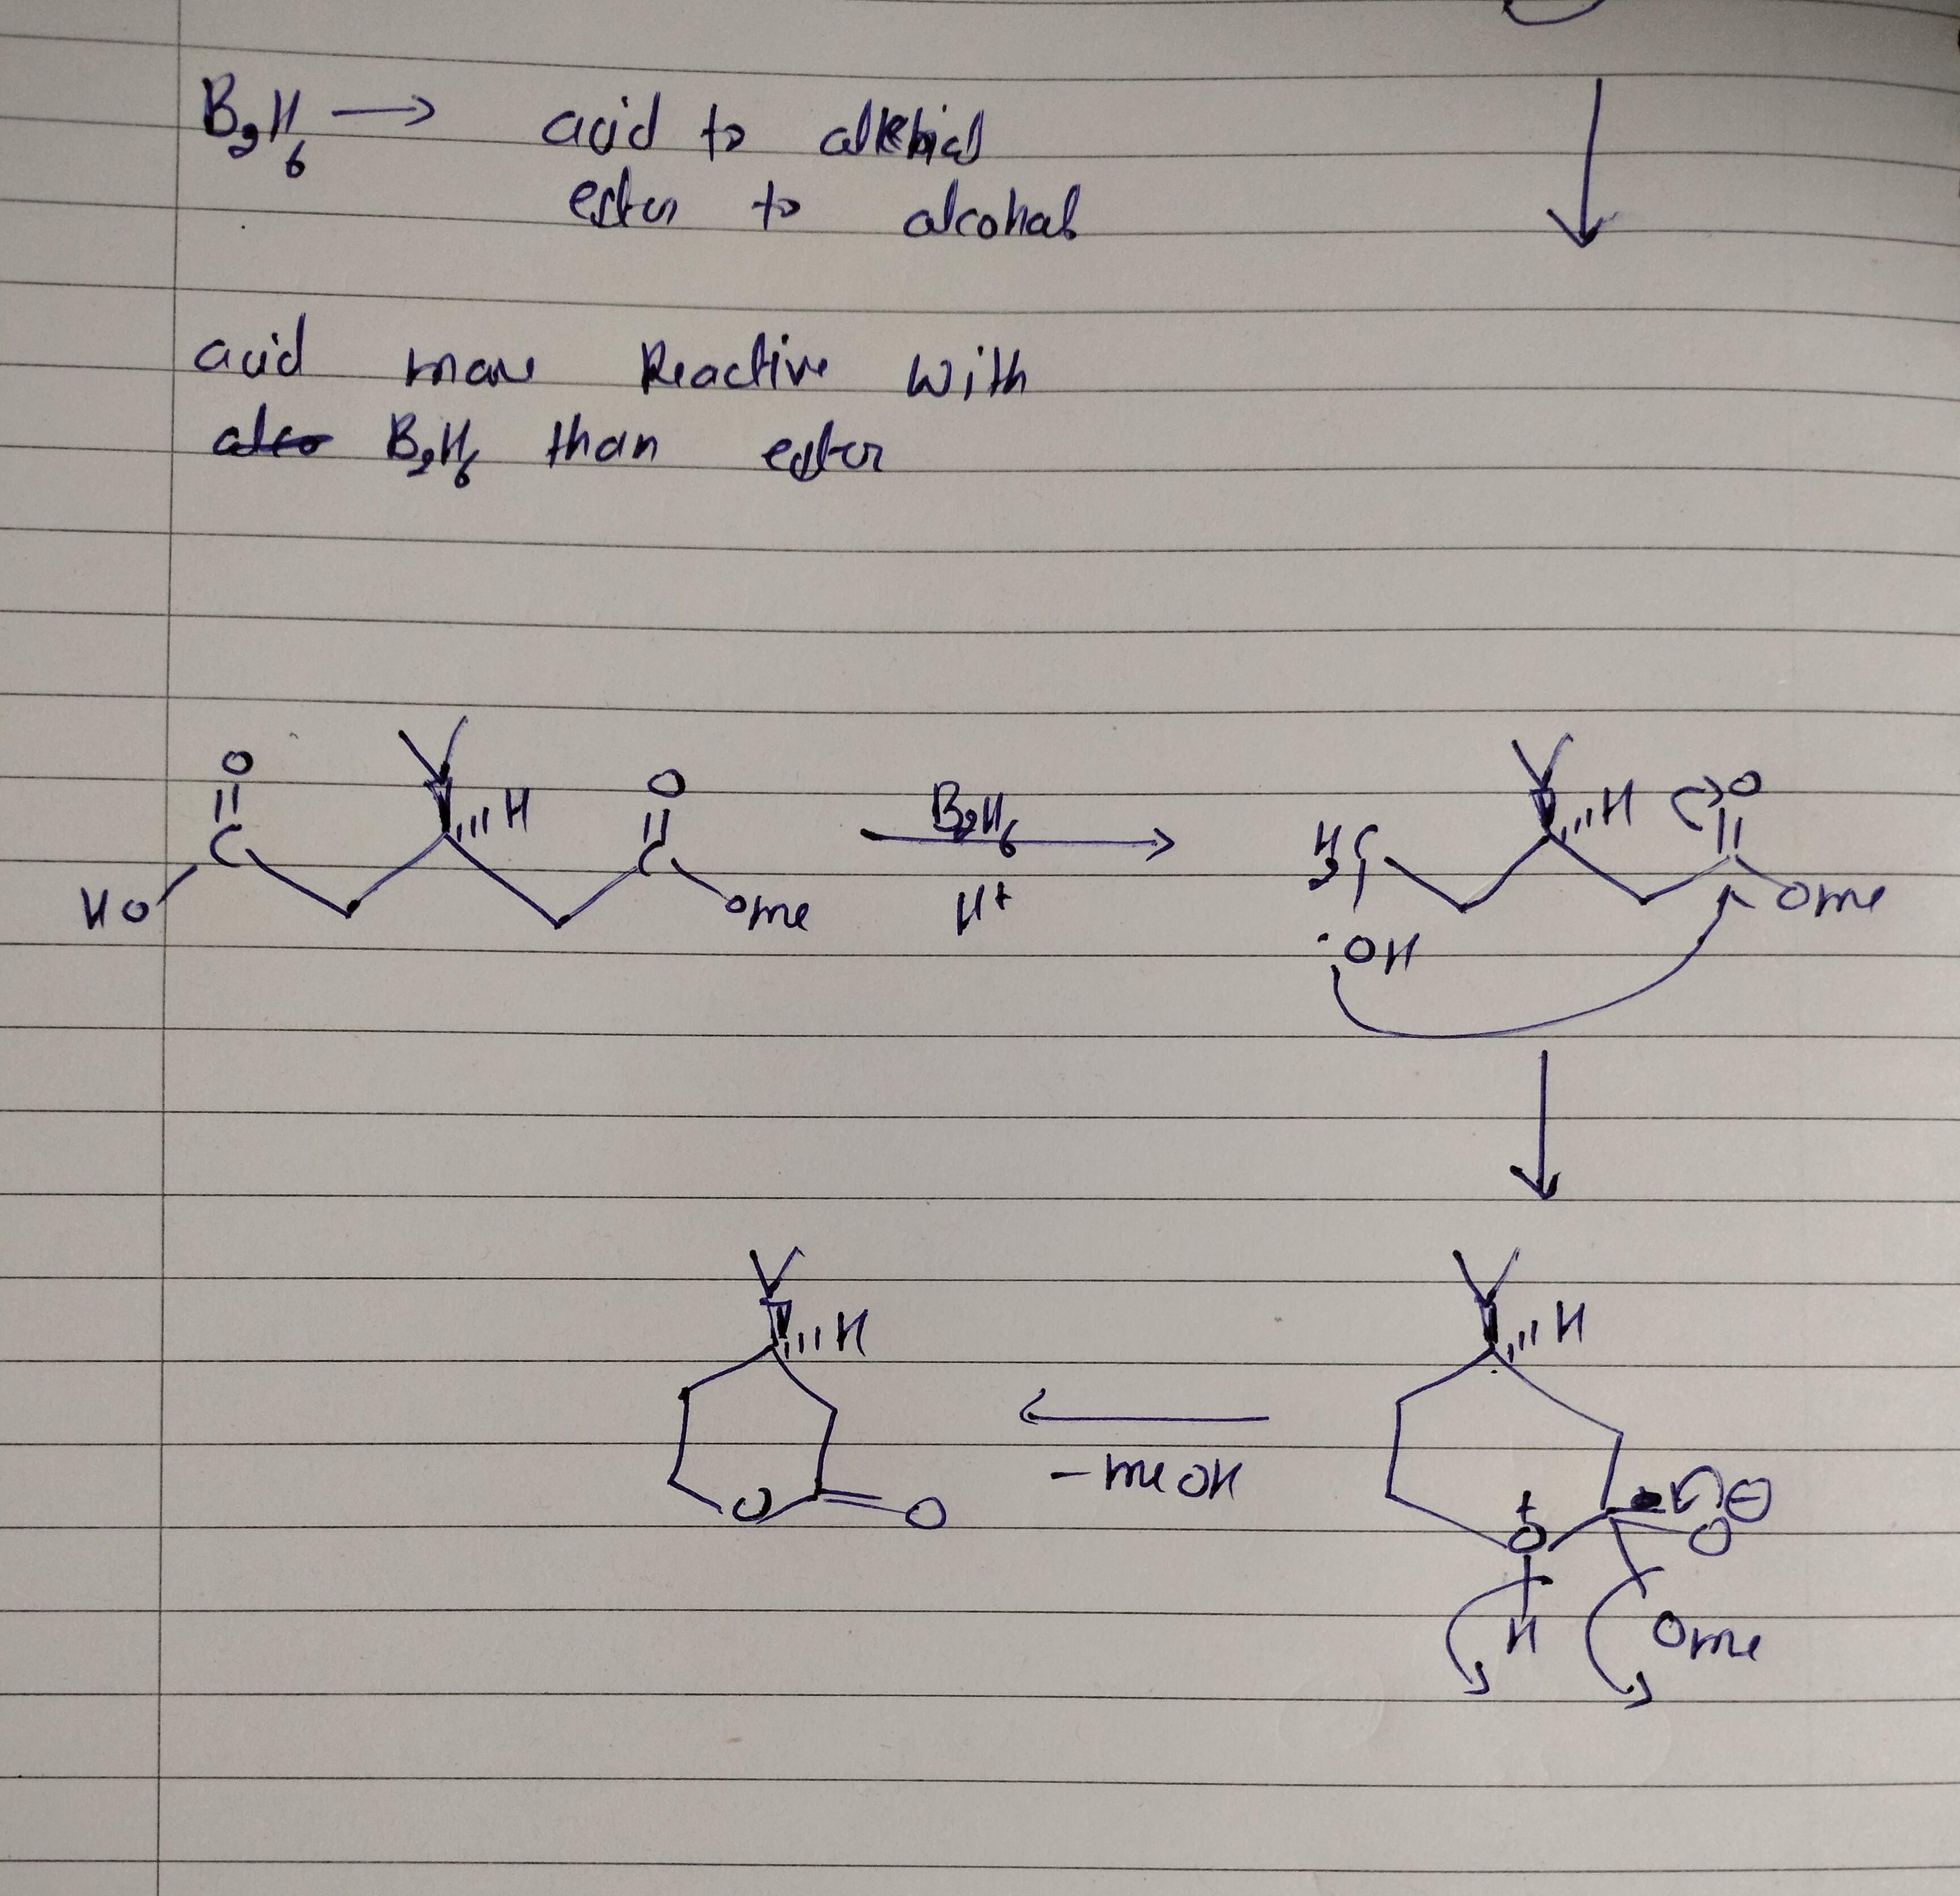 B2H6 → acid to
ester to alcohol
acid more Reactive with
also B2H6 than ester
O
H
O
HO
C
C
OMe
B2H6
H+
H2C
H
O
OMe
:OH
H
H
- MeOH
O
O
+
O
⊖
O
H
OMe